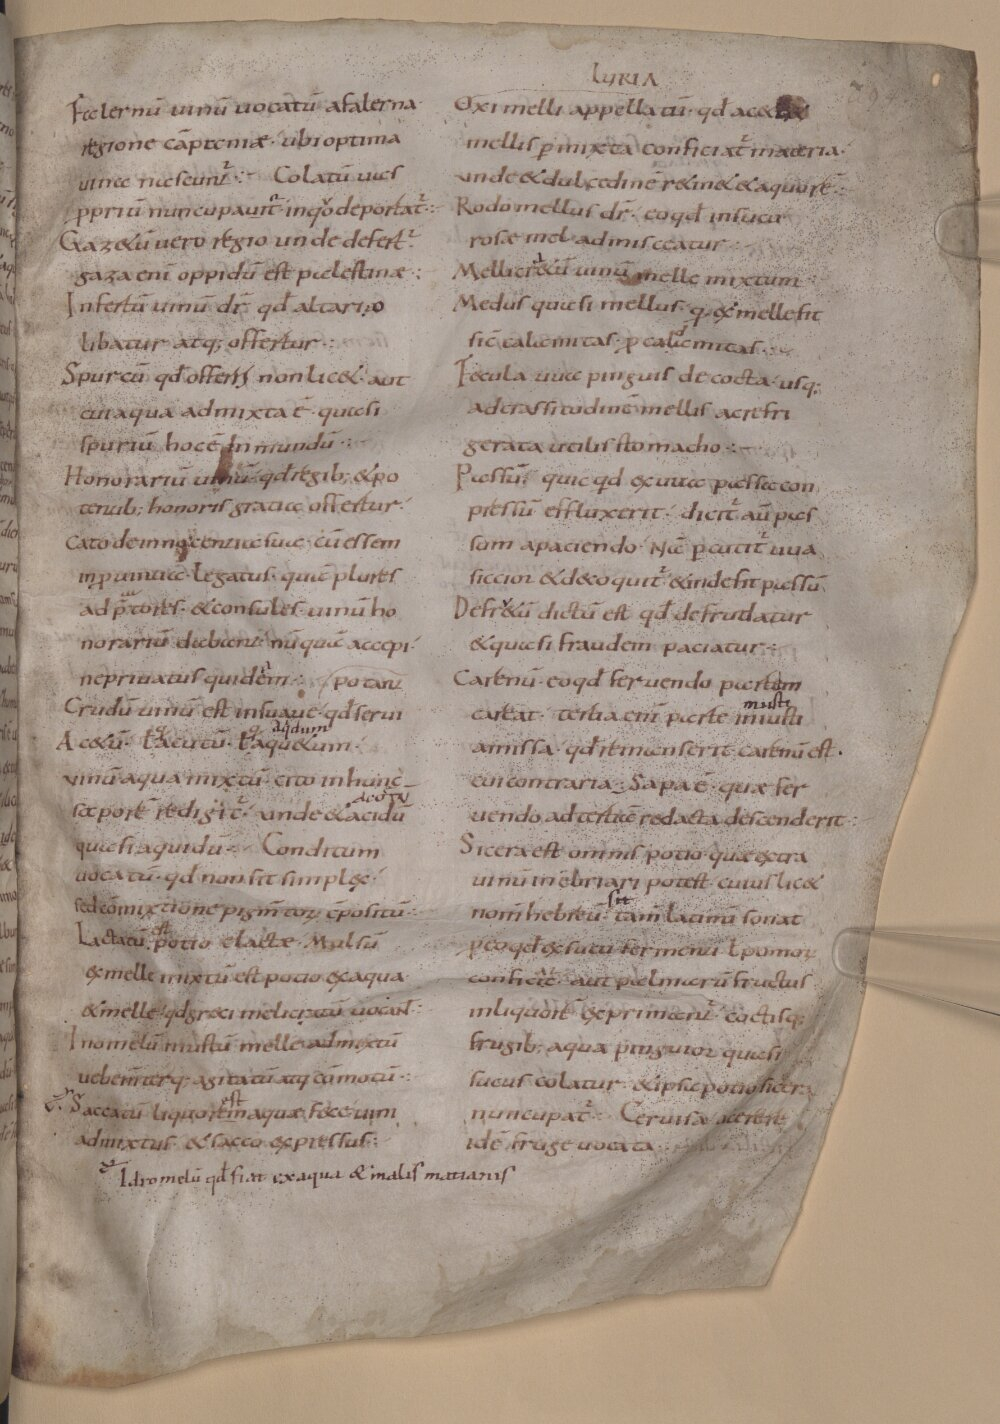 lyRIA
Falernū uinū uocatū a falerna
regione cāpaniæ · ubi optima
uina nascunt᷑ · Colatū uas
ꝓpriū nuncupaur̄ in quo deportat᷑ ·
Gazetū uero regio unde defert᷑ ·
gaza enī oppidū est palestinæ ·
Infertū uinū dr̄ qđ altario
libatur atq; offertur ·
Spurcū qđ offerri non licet aut
cui aqua admixta ē quasi
spuriū hoc ē In mundū ·
Honorariū uinū qđ regib; & po
tentib; honoris gratia offertur ·
Cato de innocentia sua · cū essem
in ꝓuincia legatus · quā plures
ad p̄tores · & consules · uinū ho
norariū dabant · nūquā accepi
ne priuatus quidem · potatū
Crudū uinū est insuaue · qđ serui
Acetū · ł acutū · ł aquetum ·
aqdum
uinū aqua mixtū · cito in hunc
acotū
saporē redigit᷑ · unde & acidū
quasi aquidū · Conditum
uocatū · qđ non sit simplex
sed cōmixtione pigm̄toꝝ cōpositū ·
Lactatū potio e lactæ · Mulsū
est
ex melle mixtū est potio ex aqua
& melle · qđ greci melicratū uocant ·
Inomelū mustū melle admixtū
uehemt̄erq; agitatū atq; cūmotū ·
est
Saccatū liquorem aquæ fæce uini
admixtus & sacco expressus ·
Idromelū qđ fiat ex aqua & malis matianis
Oximelli appellatū · qđ aceti &
mellis ꝑmixta conficiat᷑ materia ·
unde & dulcedinē retinet & aquorē ·
Rodomellus dr̄ · eo qđ in suca
rosæ mel admisceatur
Mellicratū uinū melle mixtum
Medus quasi mellus · q; ex melle fit
sic calamitas · ꝓ cadamitas ·
Fecula uua pinguis decocta · usq;
ad crassitudinē mellis ac refri
gerata utilis stomacho ·
Passū · quicqđ ex uua passa con
pressū effluxerit · dicit᷑ aū pas
sum a paciendo · Nā ꝑcutit᷑ uua
siccior & decoquit᷑ & inde fit passū
Defretū dictū est qđ defrudatur
& quasi fraudem paciatur ·
Carenū · eo qđ feruendo partem
musti
careat · tertia enī parte musti
amissa · qđ remanserit carenū est ·
cui contraria · Sapa ē · quæ fer
uendo ad tertiā redacta descenderit ·
Sicera est omnis potio quæ extra
uinū inebriari potest · cuius licet
sit
nom̄ hebreū tam̄ latinū sonat
ꝑ eo qđ ex sucu frumenti ł pomoꝝ
conficit᷑ · aut palmarū fructus
in liquorē exprimant᷑ coctisq;
frugib; aqua pinguior quasi
sucus colatur · & ipsa potio sicera
nuncupat᷑ · Ceruisa a cerere
idē fruge uocata